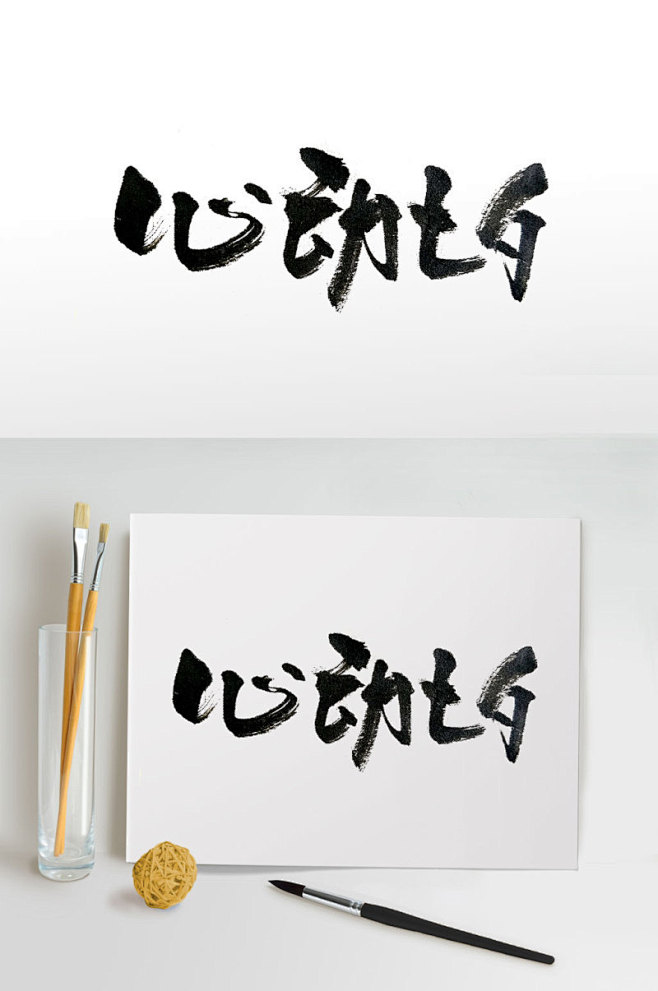 心动七夕
心动七夕